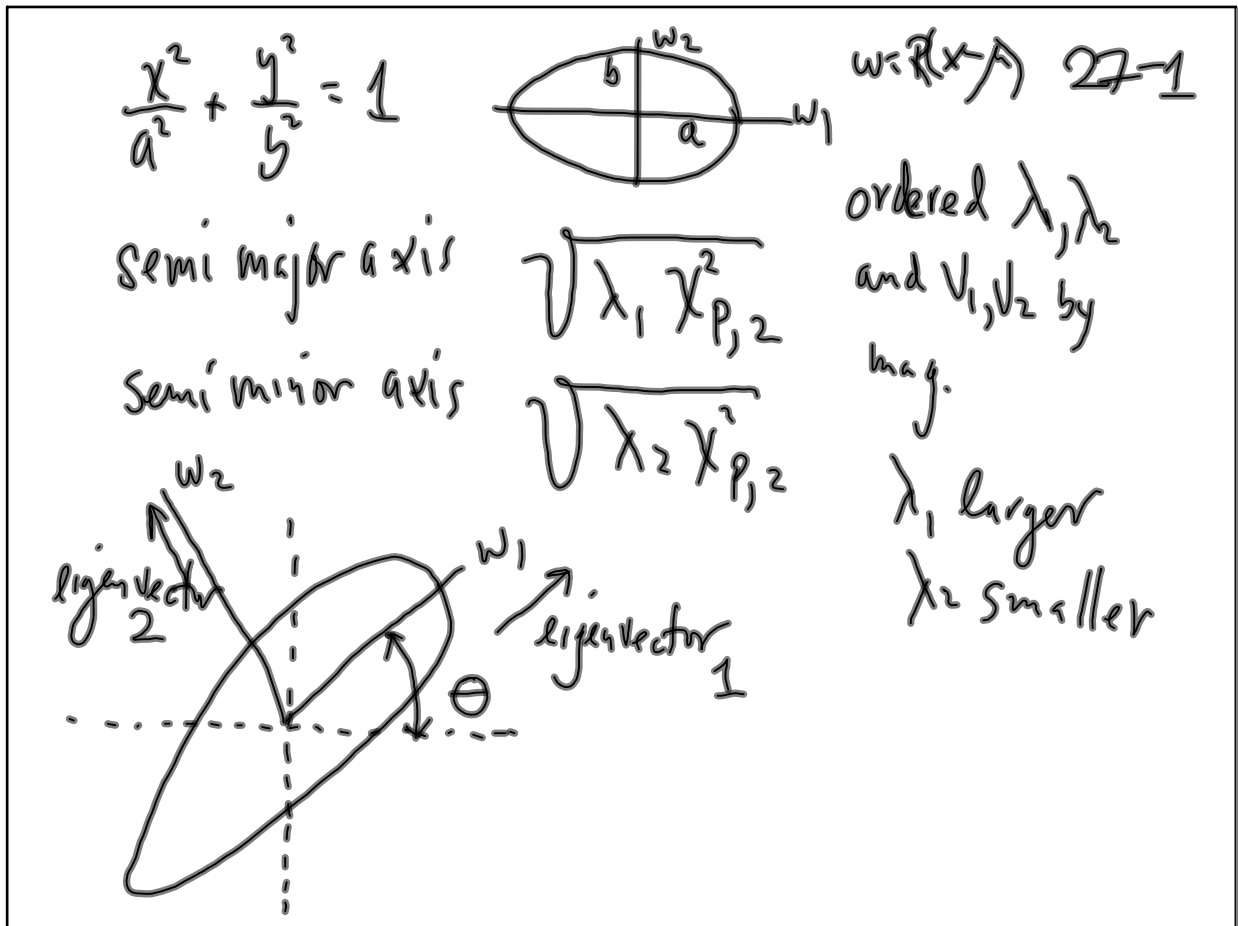 x²/a² + y²/b² = 1
b w₂
a w₁
w = R(x-μ) 27-1
semi major axis √(λ₁ χ²p,2)
semi minor axis √(λ₂ χ²p,2)
ordered λ₁, λ₂
and V₁, V₂ by
mag.
λ₁ larger
λ₂ smaller
w₂
eigenvector
2
w₁
eigenvector
1
θ